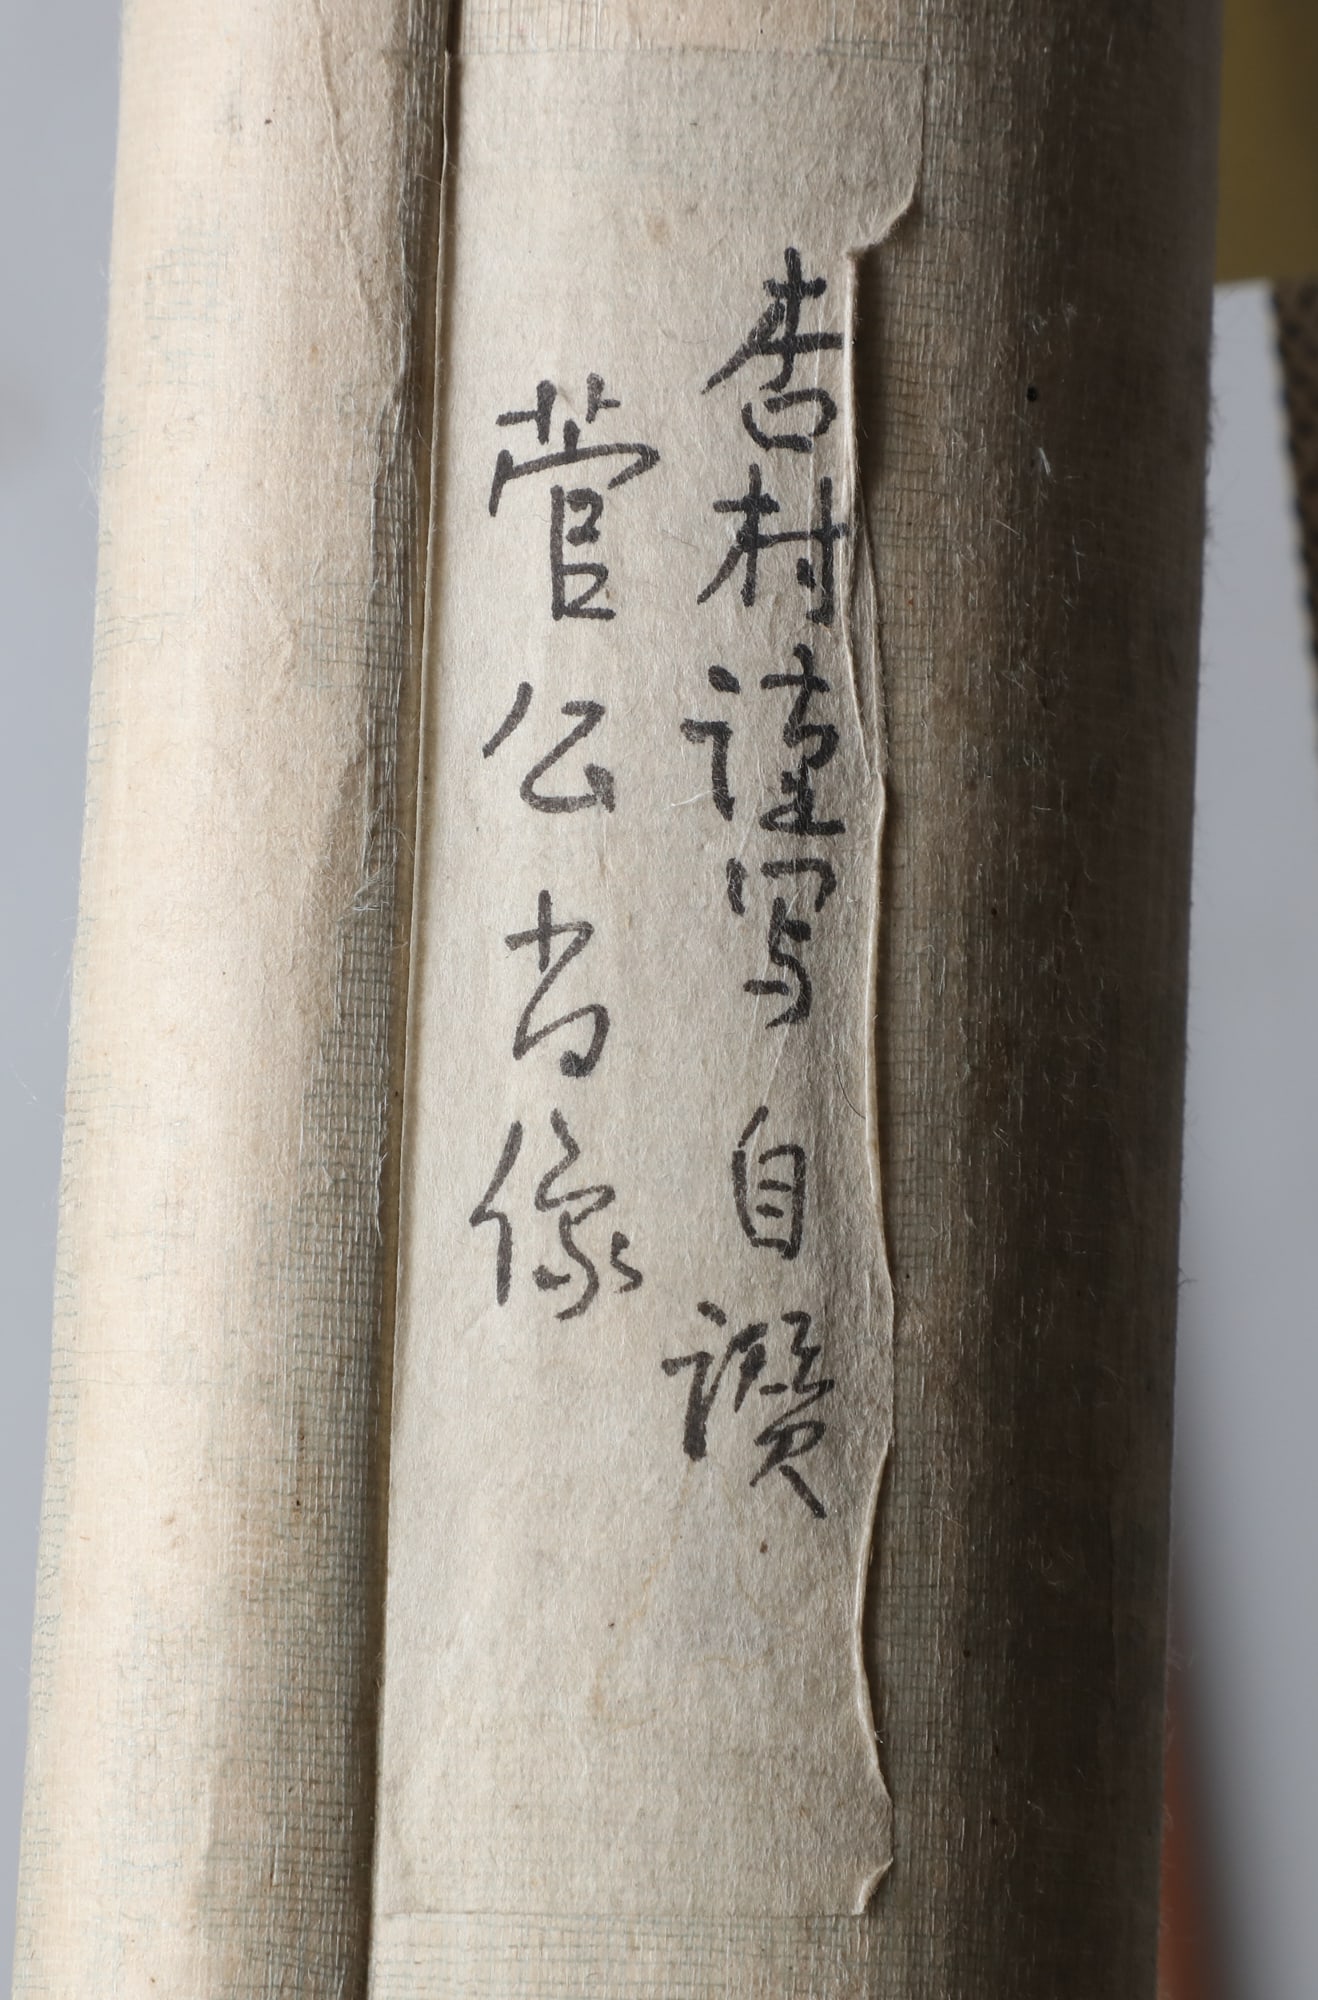 杏村謹写自讃
菅公肖像